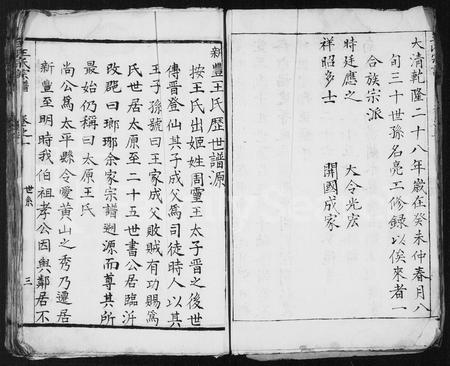 大清乾隆二十八年歲在癸未仲春月八
旬三十世孫名亮工修録以俟來者一
合族宗派
時廷應之 大令光宏
祥昭多士 開國成家
新豐王氏歷世譜源
按王氏出姬姓周靈王太子晋之後世
傳晉登仙其子成父為司徒時人以其
王子孫號曰王家成父敗賊有功賜為
氏世居太原至二十五世書公居臨沂
改郡曰瑯琊余家宗譜遡源而尊其所
最始仍稱曰太原王氏
尚公為太平縣令愛黄山之秀乃遷居
新豐至明時我伯祖孝公因與鄰居不
卷之一 世系 三